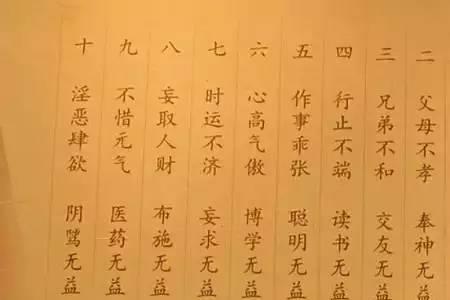 二 父母不孝 奉神无益
三 兄弟不和 交友无益
四 行止不端 读书无益
五 作事乖张 聪明无益
六 心高气傲 博学无益
七 时运不济 妄求无益
八 妄取人财 布施无益
九 不惜元气 医药无益
十 淫恶肆欲 阴骘无益